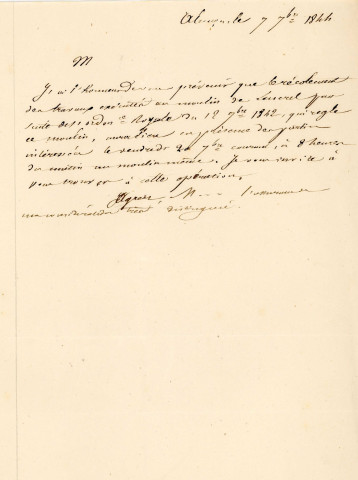 le 7 7bre 1844
M
J'ai l'honneur de vous prévenir que le récolement
des travaux exécutés au moulin de par
suite de l'ordonce Royale du 12 7bre 1842, qui règle
ce moulin, aura lieu en présence des parties
intéressées le vendredi 20 7bre courant, à 8 heures
du matin au moulin même. Je vous invite à
vous trouver à cette opération.
Agréez, M l'assurance de
ma considération très distinguée.